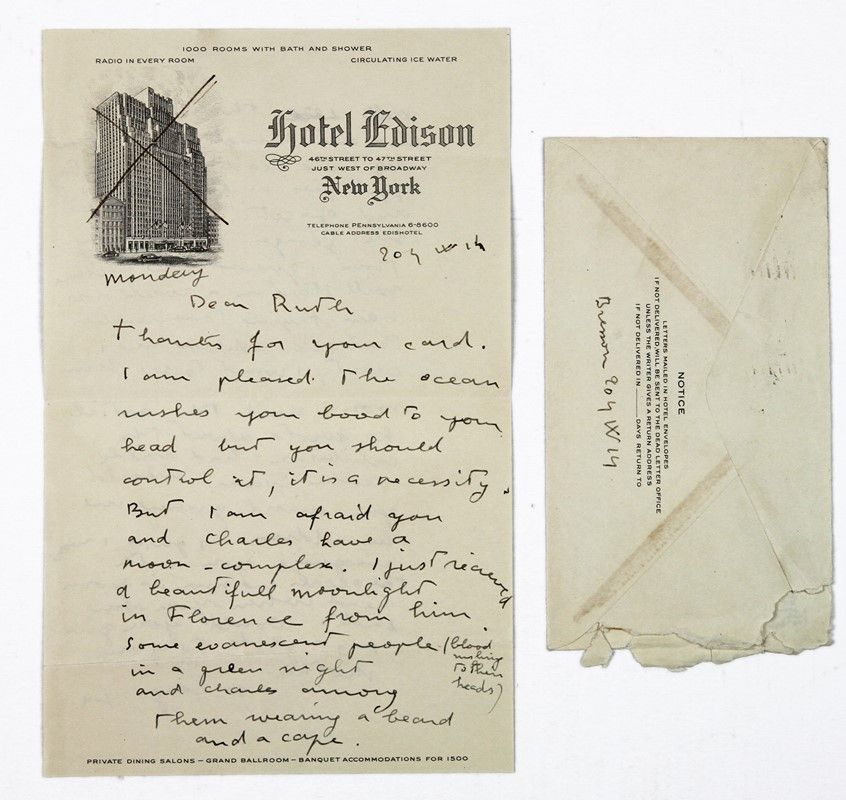 1000 ROOMS WITH BATH AND SHOWER
RADIO IN EVERY ROOM
CIRCULATING ICE WATER
Hotel Edison
46TH STREET TO 47TH STREET
JUST WEST OF BROADWAY
New York
TELEPHONE PENNSYLVANIA 6-8600
CABLE ADDRESS EDISHOTEL
204 W 14
monday
Dear Ruth
thanks for your card.
I am pleased the ocean
rushes your blood to your
head but you should
control it, it is a necessity.
But I am afraid you
and Charles have a
moon-complex. I just recieved
a beautifull moonlight
in Florence from him
Some evanescent people (blood
rushing
to their
heads)
in a green night
and charles among
them wearing a beard
and a cape.
PRIVATE DINING SALONS — GRAND BALLROOM — BANQUET ACCOMMODATIONS FOR 1500
NOTICE
LETTERS MAILED IN HOTEL ENVELOPES
IF NOT DELIVERED, WILL BE SENT TO THE DEAD LETTER OFFICE
UNLESS THE WRITER GIVES A RETURN ADDRESS
IF NOT DELIVERED IN DAYS RETURN TO
Bresson 204 W 14.